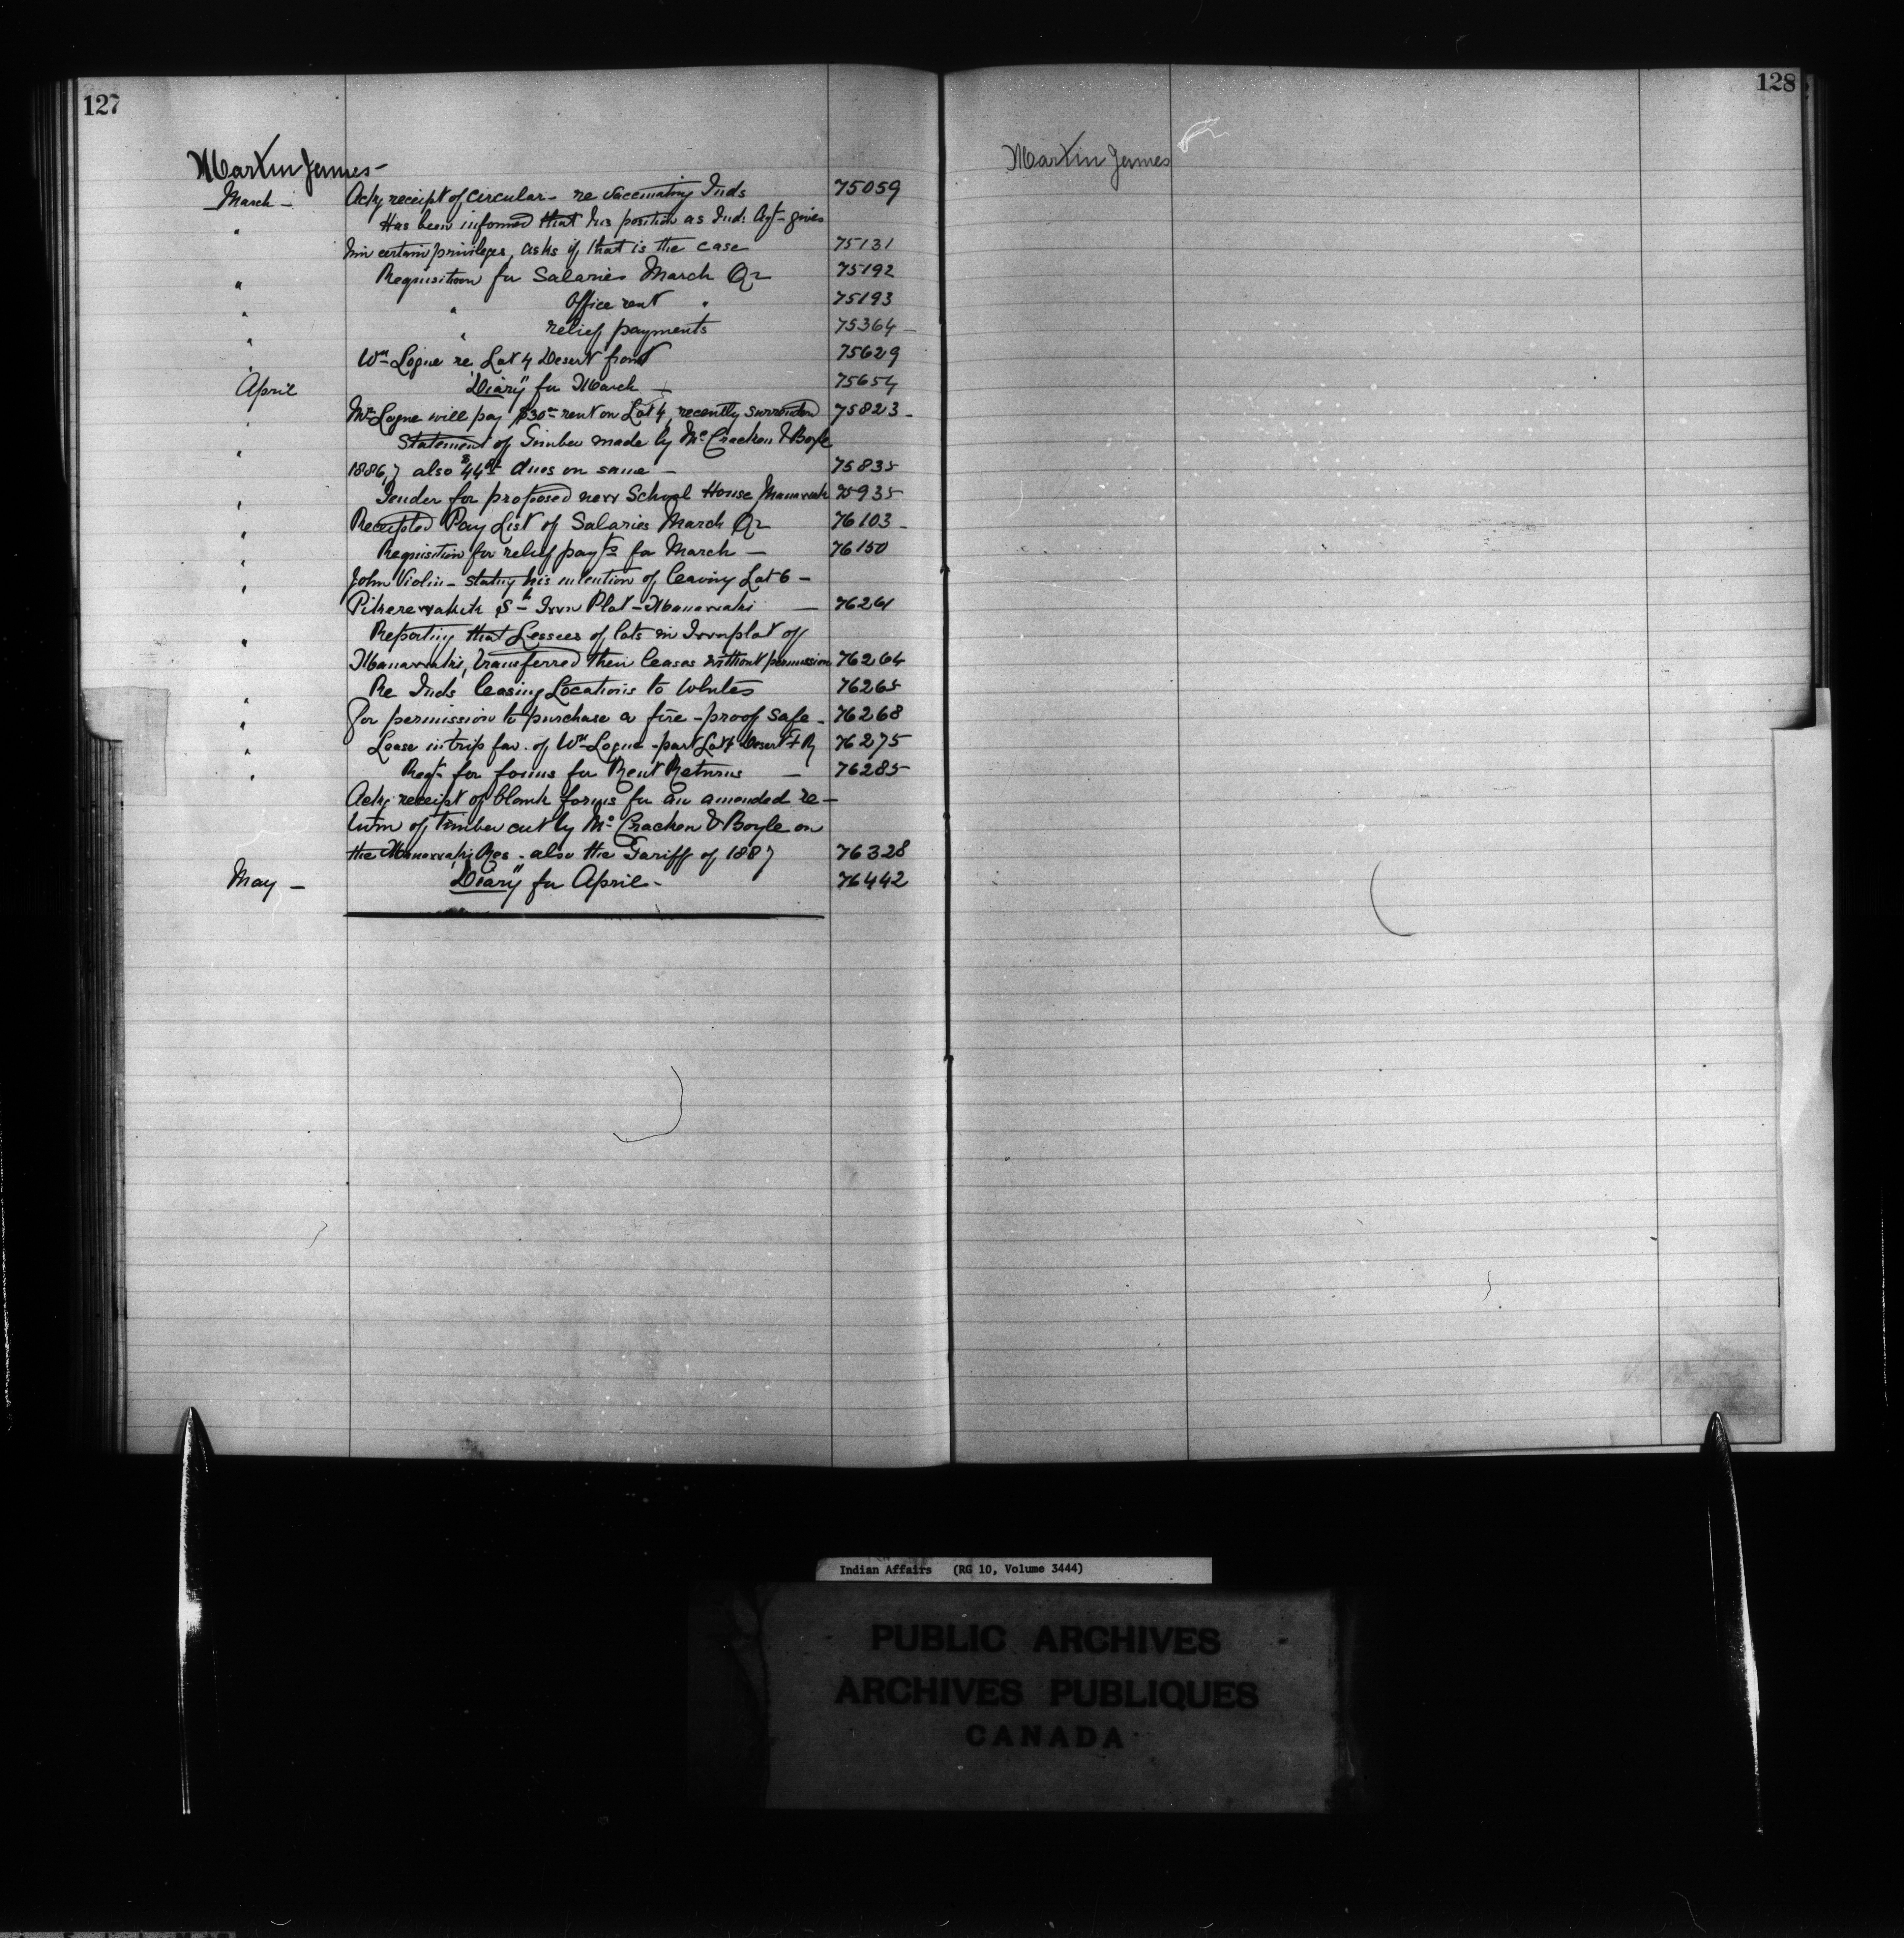 127
Martin James -
March - Ackg receipt of circular - re vaccinating Inds 75059
" Has been informed that his position as Ind: Agt - gives
him certain privileges, asks if that is the case 75131
" Requisition for Salaries March Qr 75192
" " Office rent " 75193
" " relief payments 75364 -
" Wm Logue re Lot 4 Desert front 75629
April "Diary" for March - 75654
" Wm Logue will pay $30 00 rent on Lot 4, recently surrendered 75823 -
" Statement of Timber made by Mc Cracken & Boyle
1886,7 also $44 dues on same - 75835
" Tender for proposed new School House Maniwaki 75935
" Receipted Pay List of Salaries March Qr 76103 -
" Requisition for relief payts for March - 76150
" John Violin - stating his intention of leaving Lot 6 -
St - Town Plot - Maniwaki - 76261
" Reporting that Lessees of lots in Townplot of
Maniwaki, transferred their leases without permission 76264
" Re Inds leasing Locations to Whites 76265
" For permission to purchase a fire-proof safe - 76268
" Lease in trip fav. of Wm Logue - part Lot 4 Desert 76275
" Reqn for forms for Rent Returns - 76285
Ackg receipt of blank forms for an amended re-
turn of timber cut by Mc Cracken & Boyle on
the Maniwaki Res - also the Tariff of 1887 76328
May - "Diary" for April - 76442
128
Martin James
Indian Affairs (RG 10, Volume 3444)
PUBLIC ARCHIVES
ARCHIVES PUBLIQUES
CANADA